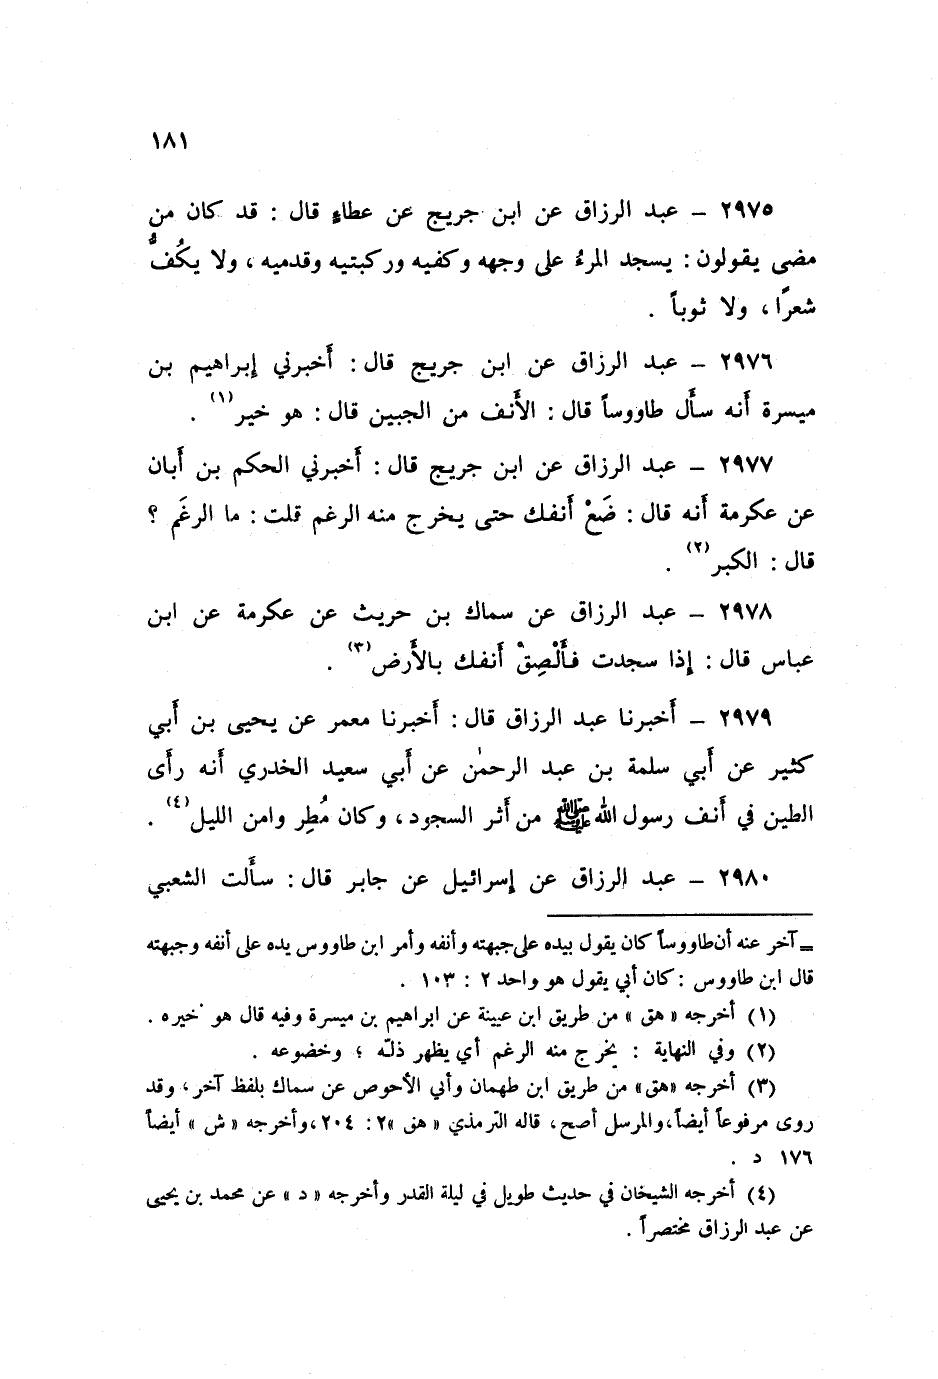 ١٨١
٢٩٧٥ – عبد الرزاق عن ابن جريج عن عطاءٍ قال : قد كان من
مضى يقولون : يسجد المرءُ على وجهه وكفيه وركبتيه وقدميه ، ولا يكُفُّ
شعرًا ، ولا ثوباً .
٢٩٧٦ – عبد الرزاق عن ابن جريج قال : أَخبرني إبراهيم بن
ميسرة أَنه سأَل طاووساً قال : الأَنف من الجبين قال : هو خير(١) .
٢٩٧٧ – عبد الرزاق عن ابن جريج قال : أَخبرني الحكم بن أَبان
عن عكرمة أَنه قال : ضَعْ أَنفك حتى يخرج منه الرغم قلت : ما الرغَم ؟
قال : الكبر(٢) .
٢٩٧٨ – عبد الرزاق عن سماك بن حريث عن عكرمة عن ابن
عباس قال : إذا سجدت فأَلْصِقْ أَنفك بالأَرض(٣) .
٢٩٧٩ – أَخبرنا عبد الرزاق قال : أَخبرنا معمر عن يحيى بن أَبي
كثير عن أَبي سلمة بن عبد الرحمٰن عن أَبي سعيد الخدري أَنه رأَى
الطين في أَنف رسول الله ﷺ من أَثر السجود ، وكان مُطِر وامن الليل(٤) .
٢٩٨٠ – عبد الرزاق عن إسرائيل عن جابر قال : سأَلت الشعبي
= آخر عنه أن طاووساً كان يقول بيده على جبهته وأنفه وأمر ابن طاووس يده على أنفه وجبهته
قال ابن طاووس : كان أبي يقول هو واحد ٢ : ١٠٣ .
(١) أخرجه « هق » من طريق ابن عيينة عن ابراهيم بن ميسرة وفيه قال هو خيره .
(٢) وفي النهاية : يخرج منه الرغم أي يظهر ذلّه ؛ وخضوعه .
(٣) أخرجه «هق» من طريق ابن طهمان وأبي الأحوص عن سماك بلفظ آخر ، وقد
روى مرفوعاً أيضاً،والمرسل أصح ، قاله الترمذي « هق »٢ : ٢٠٤ ،وأخرجه « ش » أيضاً
١٧٦ د .
(٤) أخرجه الشيخان في حديث طويل في ليلة القدر وأخرجه « د » عن محمد بن يحيى
عن عبد الرزاق مختصراً .